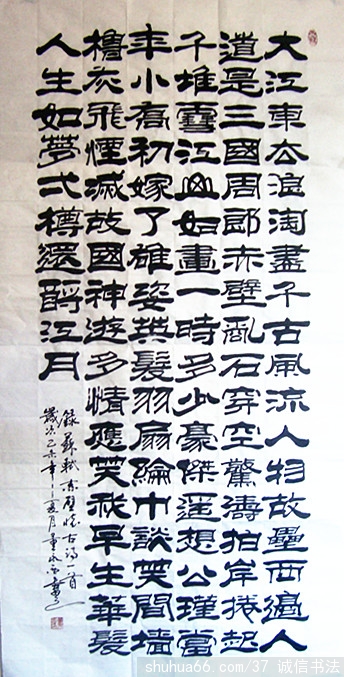 大江東去浪淘盡千古風流人物故壘西邊人
道是三國周郎赤壁亂石穿空驚濤拍岸捲起
千堆雪江山如畫一時多少豪傑遥想公瑾當
年小喬初嫁了雄姿英髮羽扇綸巾談笑間墻
櫓灰飛煙滅故國神游多情應笑我早生華髮
人生如夢弌樽還酹江月
錄蘇軾赤壁懷古詞一首
歲次己未年之夏月
shuhua66.com/37 诚信书法